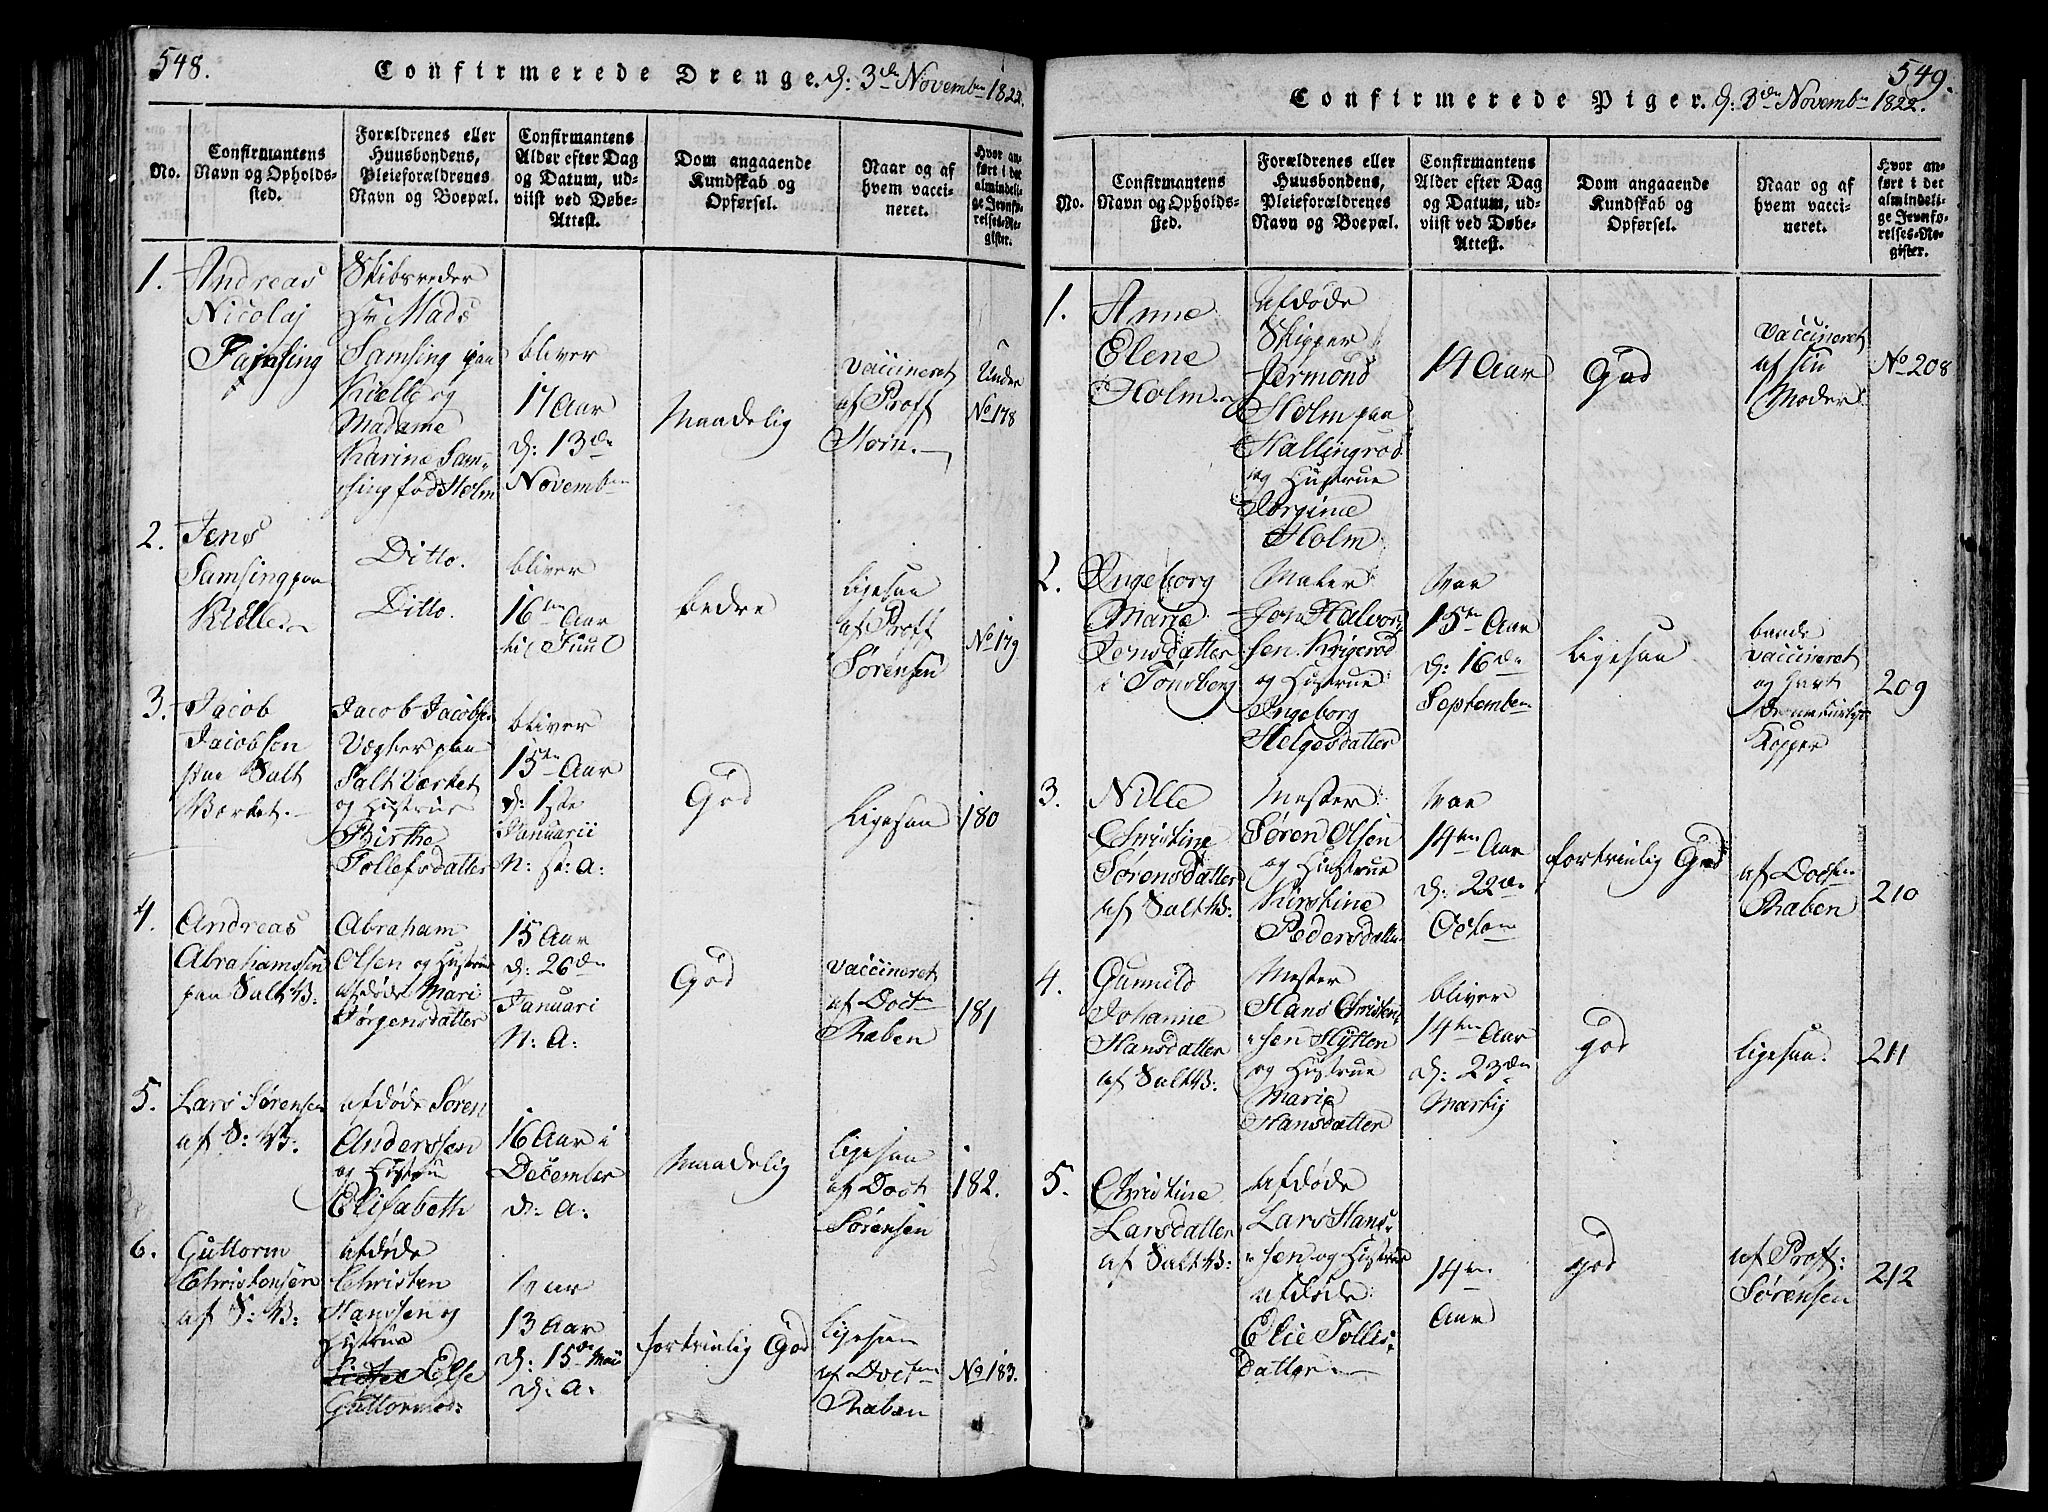 548.
Confirmerede Drenge. d: 3de Novembr 1822.
No.
Confirmantens
Navn og Opholds-
sted.
Forældrenes eller
Huusbondens,
Pleieforældrenes
Navn og Boepæl.
Confirmantens
Alder efter Dag
og Datum, ud-
viist ved Døbe-
Attest.
Dom angaaende
Kundskab og
Opførsel.
Naar og af
hvem vacci-
neret.
Hvor an-
ført i det
almindeli-
ge Jevnfø-
relses-Re-
gister.
1.
Andreas
Nicolaj
Samsing
Skibsreder
Hr Mads
Samsing paa
Kielle og
Madame
Karine Sam-
sing fød Holm
bliver
17 Aar
d: 13de
Novembr
Maadelig
vaccineret
af Proff
Horn.
Under
No 178
2.
Jens
Samsing paa
Kiølle
Ditto.
Ditto.
bliver
16ten Aar
til Juul
bedre
ligesaa
af Proff
Sørensen
No 179
3.
Jacob
Jacobsen
paa Salt
Værket.
Jacob Jacobsen
Vægter paa
Salt Værket
og Hustrue
Birthe
Tollefsdatter
bliver
15ten Aar
d: 1ste
Januarii
N: st: a:
God
ligesaa
180
4.
Andreas
Abrahamsen
paa Salt V:
Abraham
Olsen og Hustrue
afdøde Mari
Jørgensdatter
15 Aar
d: 26de
Januari
N: A:
God
vaccineret
af Doctr
Raben
181
5.
Lars Sørensen
af S: V:
afdøde Søren
Anderssen
og Hustru
Elisabeth
16 Aar i
December
d: a:
Maadelig
ligesaa
af Doct
Sørensen
182.
6.
Guttorm
Christensen
af S: V:
afdøde
Christen
Hanssen og
Hustrue
Else
Guttormsd:
13 Aar
d: 15de Mai
d: a:
fortrinlig God
ligesaa
af Doct
Raben
No 183.
549.
Confirmerede Piger. d: 3de Novembr 1822.
No.
Confirmantens
Navn og Opholds-
sted.
Forældrenes eller
Huusbondens,
Pleieforældrenes
Navn og Boepæl.
Confirmantens
Alder efter Dag
og Datum, ud-
viist ved Døbe-
Attest.
Dom angaaende
Kundskab og
Opførsel.
Naar og af
hvem vacci-
neret.
Hvor an-
ført i det
almindeli-
ge Jevnfø-
relses-Re-
gister.
1.
Anne
Elene
Holm
afdøde
Skipper
Jermond
Holm paa
Hallingrød
og Hustrue
Jorgine
Holm
14 Aar
God
vaccineret
af sin
Moder
No 208
2.
Ingeborg
Marie
Jensdatter
i Tonsberg
Maler
Jens Halvor-
sen Krigerød
og Hustrue
Ingeborg
Helgesdatter
var
15ten Aar
d: 16de
September
ligesaa
baade
vaccineret
og havt
Kopper
209
3.
Nille
Christine
Sørensdatter
af Salt V:
Mester
Søren Olsen
og Hustrue
Kirstine
Pedersdatter
var
14ten Aar
d: 22de
Octobr
fortrinlig God
af Doctr
Raben
210
4.
Gunnild
Johanne
Hansdatter
af Salt V:
Mester
Hans Christen-
sen Hytten
og Hustrue
Marie
Hansdatter
bliver
14ten Aar
d: 23de
Martij
God
ligesaa.
211
5.
Christine
Larsdatter
af Salt V:
afdøde
Lars Hans-
sen og Hustrue
afdøde
Elie Tolles-
datter
14ten
Aar
god
af Proff:
Sørensen
212